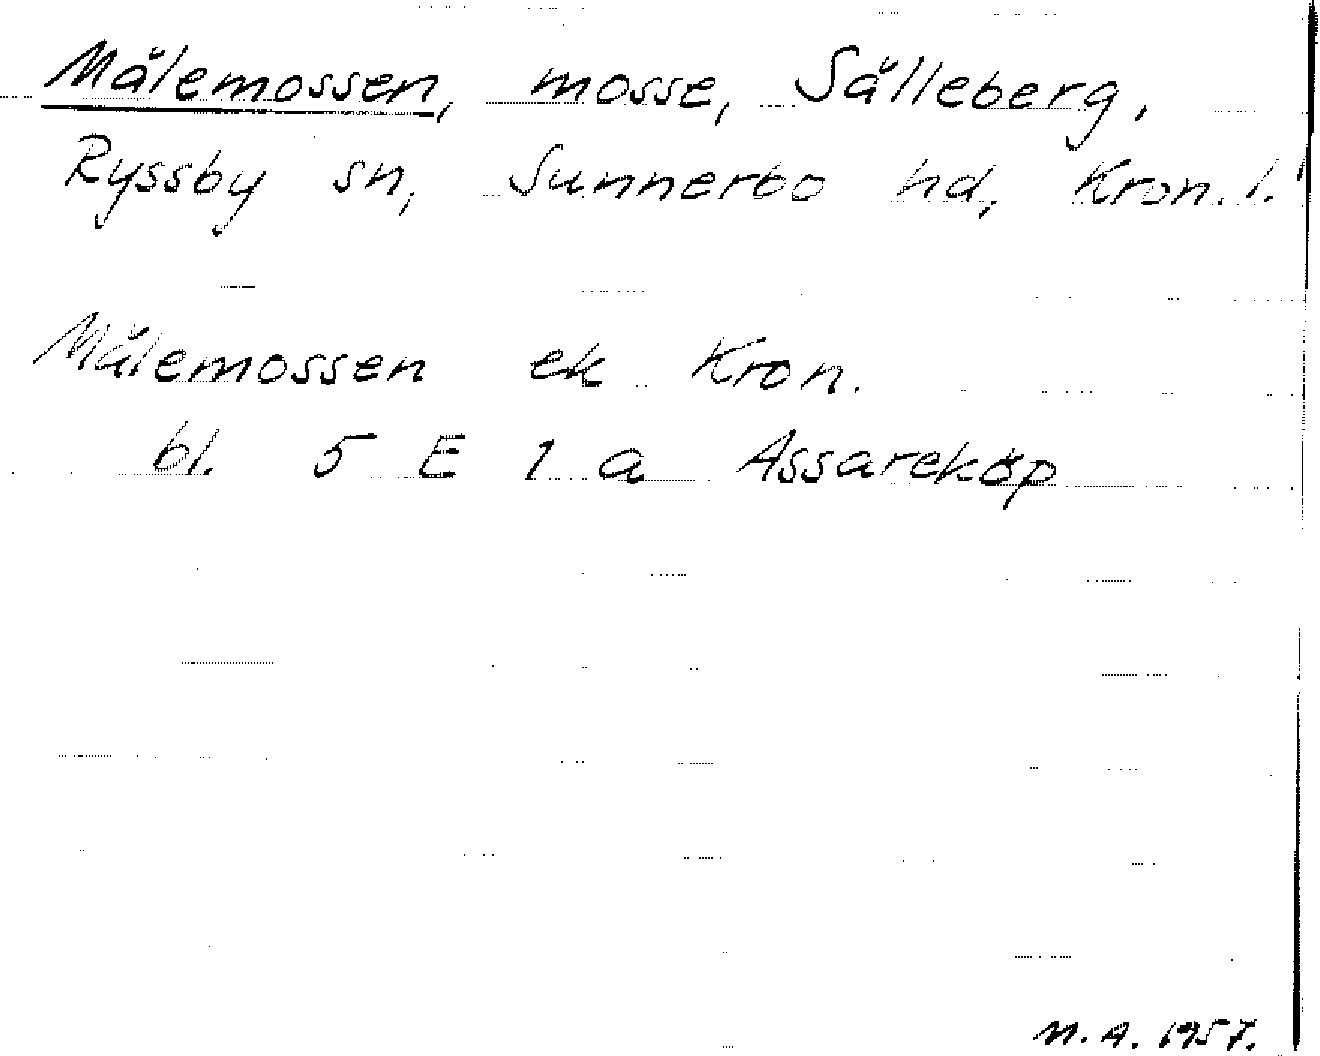 Målemossen, mosse, Sålleberg,
Ryssby sn, Sunnerbo hd, Kron. l.
Målemossen ek Kron.
bl. 5 E 1 a Assareköp
M. A. 1957.